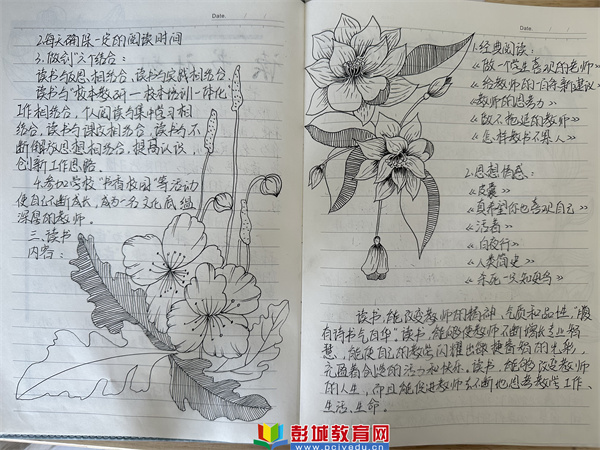 Date.
2.每天确保一定的阅读时间
3.做到"六个结合":
读书与反思相结合,读书与实践相结合,
读书与"校本教研——校本培训一体化"
工作相结合,个人阅读与集中学习相
结合,读书与课改相结合,读书与不
断解放思想相结合,提高认识,
创新工作思路。
4.参加学校"书香校园"等活动
使自己不断成长,成为一名文化底蕴
深厚的教师。
三、读书
内容:
Date.
1.经典阅读:
《做一个学生喜欢的老师》
《给教师的一百条新建议》
《教师的思考力》
《做不拖延的教师》
《怎样教书不累人》
2.思想情感:
《皮囊》
《真希望你也喜欢自己》
《活着》
《白夜行》
《人类简史》
《杀死一只知更鸟》
读书,能改变教师的精神、气质和品性,"腹
有诗书气自华"读书,能够使教师不断增长专业智
慧,能使自己的教学闪耀出睿智的光彩,
充满着创造的活力和快乐。读书,能够改变教师
的人生,而且能促进教师不断地思考教学工作、
生活、生命。
彭城教育网
www.pcjyedu.cn